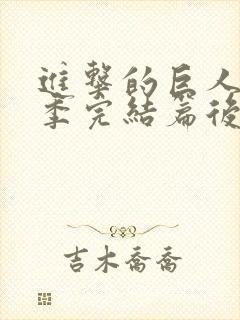 進擊的巨人
季完結篇後
吉木喬喬